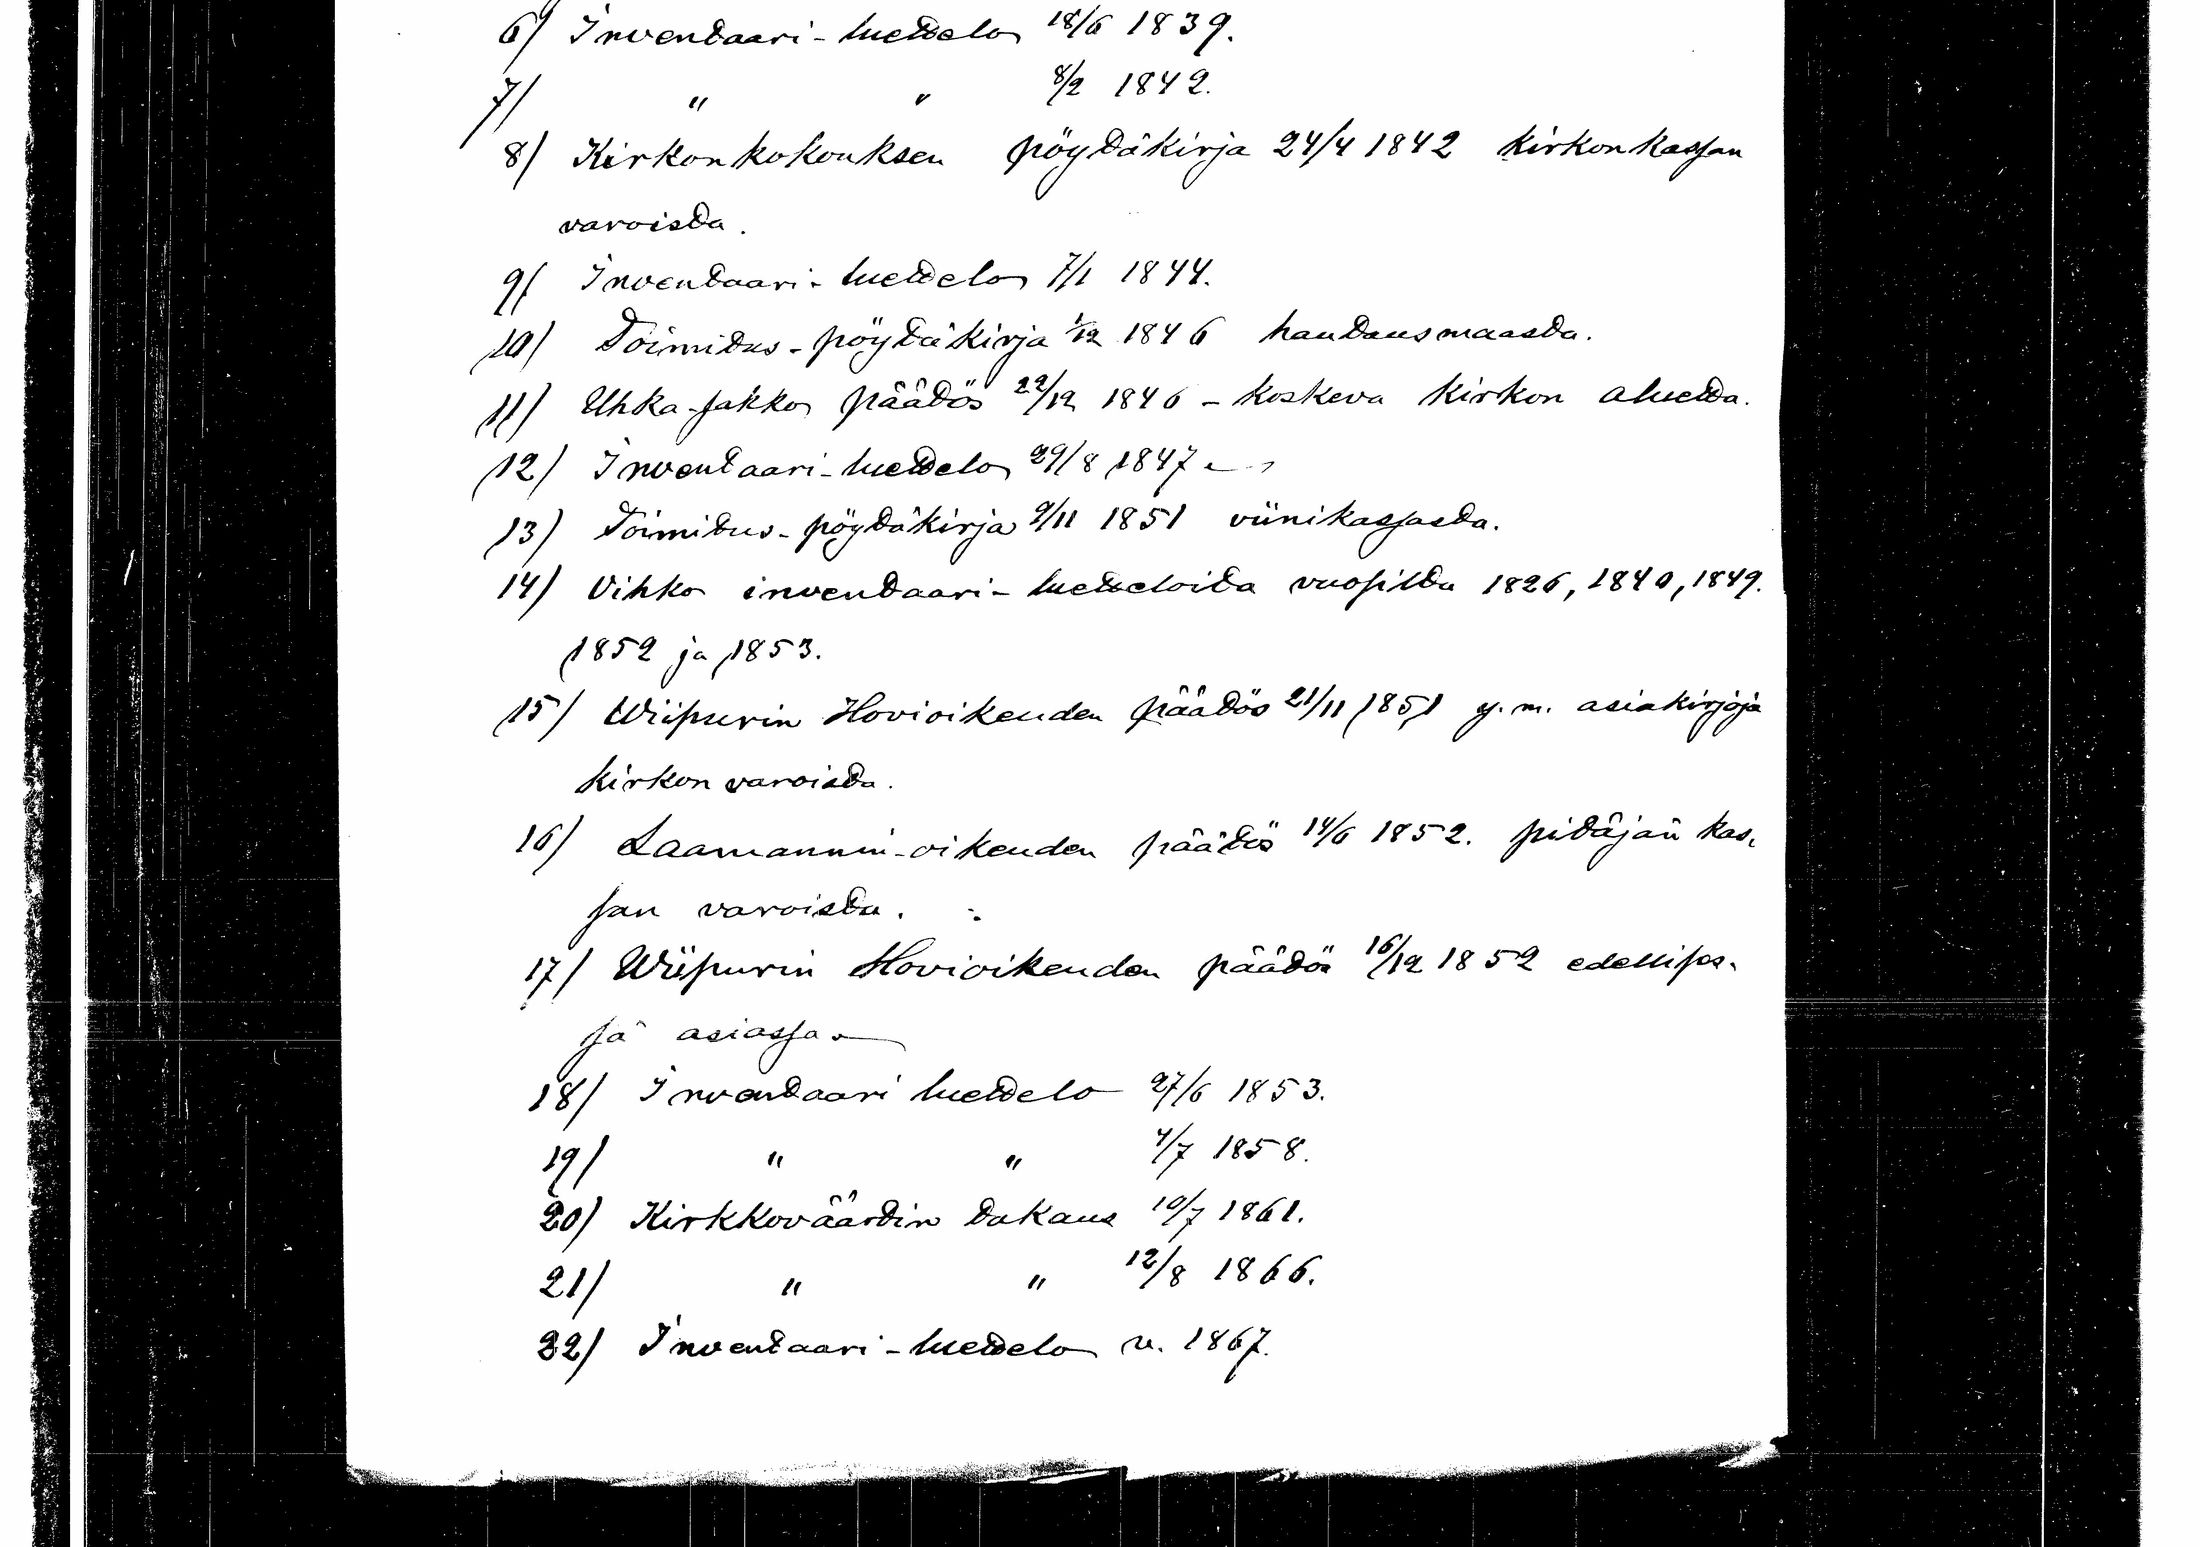 6) Inventaari-luettelo 18/6 1839.
7) " " 8/2 1842.
8) Kirkonkokouksen pöytäkirja 24/4 1842 kirkonkassan
varoista.
9) Inventaari-luettelo 7/1 1844.
10) Toimitus-pöytäkirja 1/12 1846 hautausmaasta.
11) Uhka-sakko päätös 22/12 1846 - koskeva kirkon aluetta.
12) Inventaari-luettelo 29/8 1847.
13) Toimitus-pöytäkirja 9/11 1851 viinikassasta.
14) Vihko inventaari-luetteloita vuosilta 1826, 1840, 1849.
1852 ja 1853.
15) Wiipurin Hovioikeuden päätös 21/11 1851 y.m. asiakirjoja
kirkon varoista.
16) Laamannin-oikeuden päätös 14/6 1852. pitäjän kas-
san varoista.
17) Wiipurin Hovioikeuden päätös 16/12 1852 edellises-
sä asiassa.
18) Inventaari luettelo 27/6 1853.
19) " " 4/7 1858.
20) Kirkkoväärtin takaus 10/7 1861.
21) " " 12/8 1866.
22) Inventaari-luettelo v. 1867.